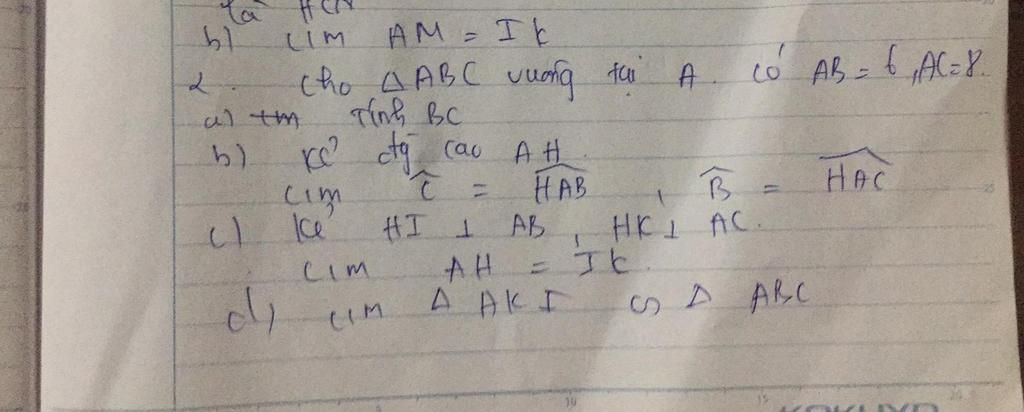 b) C/m AM = Ik
2. Cho △ ABC vuông tại A. có AB = 6, AC=8.
a) tm Tính BC
b) Kẻ đg cao AH
C/m Ĉ = \widehat{HAB}, B̂ = \widehat{HAC}
c) Kẻ HI ⊥ AB, HK ⊥ AC.
C/m AH = Ik.
d) C/m △ AKI ∽ △ ABC